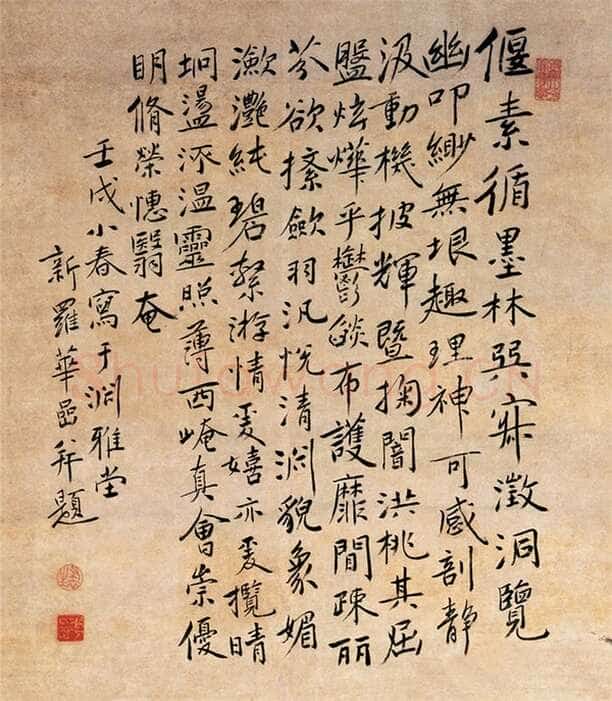 偃素循墨林巽寂澂洞覽
幽叩緲無垠趣理神可感剖静
汲動機披輝暨掬闇洪桃其屈
盤炫燁乎鬱燄布護靡間疎丽
芬欲揉歛羽汎悅清渊貌象媚
瀲灩純碧繋游情爰嬉亦爰攬晴
坰盪温靈照薄西崦真會崇優
明脩榮翳奄
壬戌小春寫于渊雅堂
新羅華嵒并題